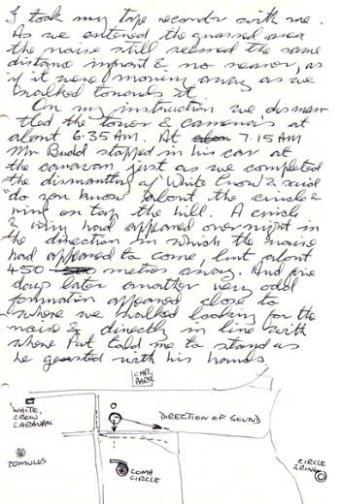 I took my tape recorder with me.
As we entered the grassed area
the noise still seemed the same
distance in front & no nearer, as
if it were moving away as we
walked towards it.
On my instruction we disman
tled the tower & camera's at
about 6:35 AM. At 7.15 AM
Mr Budd stopped in his car at
the caravan just as we completed
the dismantling of White Crow & said
do you know about the circle &
ring on top the hill. A circle
& ring had appeared overnight in
the direction in which the noise
had appeared to come, but about
450 metres away. And five
days later another very odd
formation appeared close to
where we walked looking for the
noise & directly in line with
where Pat told me to stand as
he gested with his hands
CAR
PARK
WHITE
CROW
CARAVAN
DIRECTION OF SOUND
TUMULUS
COMA
CIRCLE
CIRCLE
& RING